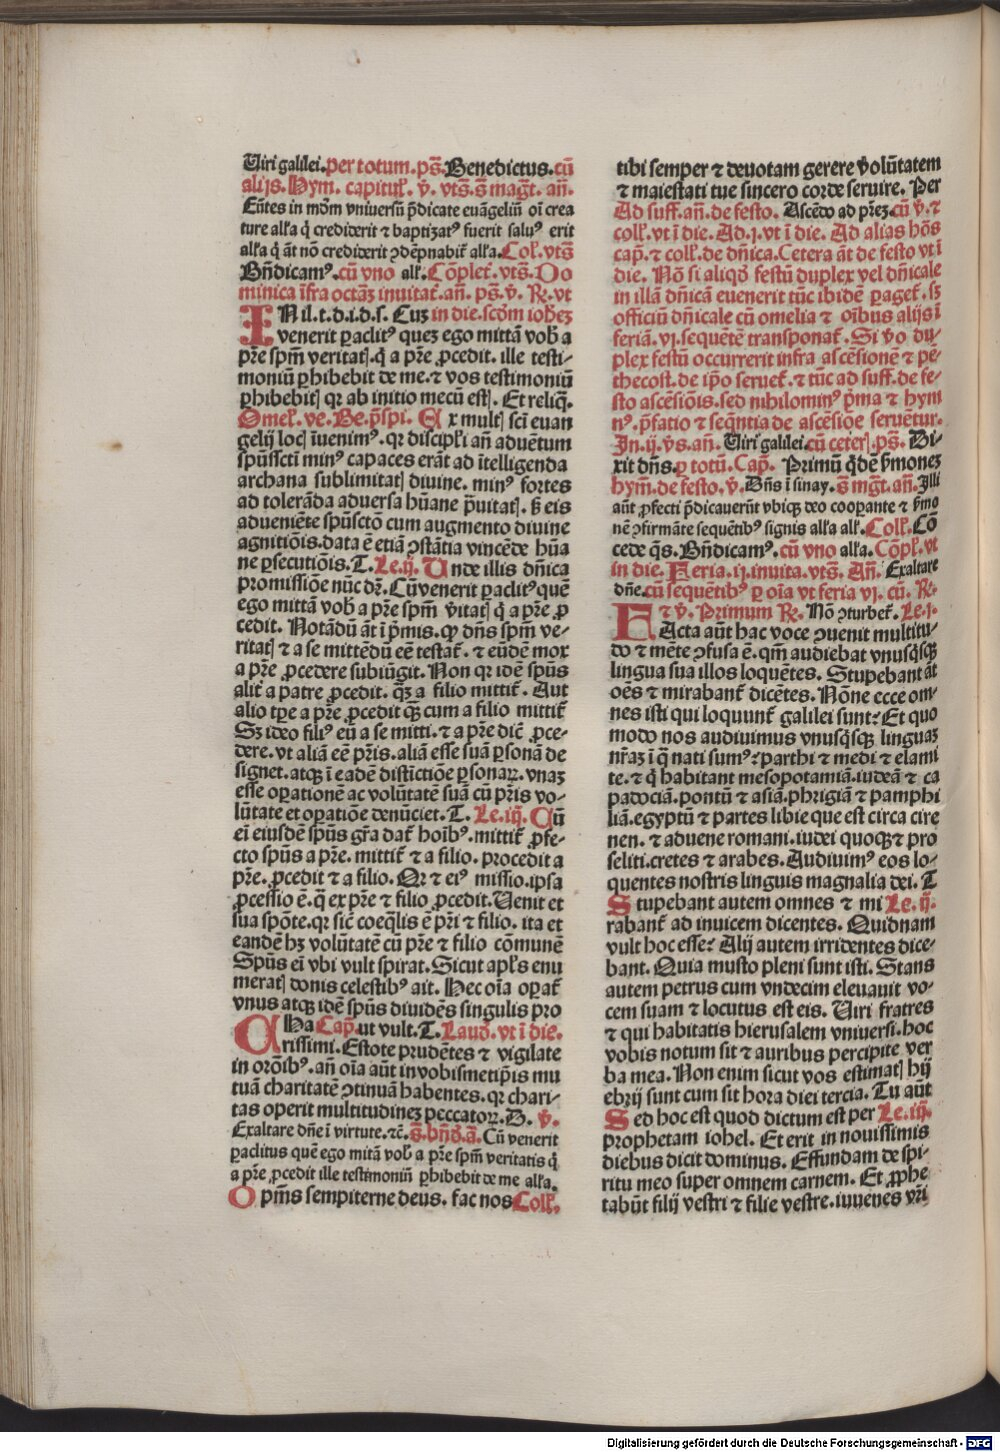 Uiri galilei.per totum.ps̄.Benedictus.cū
alijs.Hym. capitul᷑. v̄. vts̄.s̄ magt̄. an̄.
Eūtes in mōm vniuersū p̄dicate euāgeliū oī crea
ture alła q̄ crediderit ⁊ baptizatꝰ fuerit saluꝰ erit
alła q̄ āt nō crediderit ꝯdēpnabit᷑ alła.Col᷑.vts̄
Bn̄dicamꝰ.cū vno all᷑.Cōplet᷑.vts̄.Do
minica īfra octaꝫ inuitat᷑.an̄. ps̄.v̄. R̄. vt
INil.t.d.i.d.s. Cuꝫ in die.scd̄m ioheꝫ
venerit ꝑaclitꝰ queꝫ ego mittā vob̄ a
pr̄e spm̄ veritatꝭ.q̄ a pr̄e ꝓcedit. ille testi-
moniū ꝑhibebit de me.⁊ vos testimoniū
ꝑhibebitꝭ qꝛ ab initio mecū estꝭ. Et reliq̄.
Omel᷑. ve. Be. p̄spi. Ex multꝭ scī euan
gelij locꝭ īuenimꝰ. qꝛ discipl᷑i an̄ aduētum
spūssctī minꝰ capaces erāt ad ītelligenda
archana sublimitatꝭ diuine. minꝰ fortes
ad tolerāda aduersa hūane p̄uitatꝭ. ß eis
adueniēte spūsctō cum augmento diuine
agnitiōis.data ē etiā ꝯstātia vincēde hūa
ne ꝑsecutiōis. T. Le.ij. Unde illis dn̄ica
promissiōe nūc dr̄. Cū venerit ꝑaclitꝰ quē
ego mittā vob̄ a pr̄e spm̄ v̄itatꝭ q̄ a pr̄e ꝓ
cedit. Notādū āt ī p̄mis. qꝙ dn̄s spm̄ ve-
ritatꝭ ⁊ a se mittēdū eē testat᷑. ⁊ eūdē mox
a pr̄e ꝓcedere subiūgit. Non qꝛ idē spūs
alit᷑ a patre ꝓcedit. q̄ꝫ a filio mittit᷑. Aut
alio tꝑe a pr̄e ꝓcedit qꝫ̄ cum a filio mittit᷑
Sꝫ ideo filiꝰ eū a se mitti. ⁊ a pr̄e dic̄ ꝓce-
dere. vt aliā eē pr̄is. aliā esse suā ꝑsonā de
signet. atqꝫ ī eadē distīctiōe ꝑsonaꝝ. vnaꝫ
esse oꝑationē ac volūtatē suā cū pr̄is vo-
lūtate et oꝑatiōe denūciet. T. Le.iij. Cū
eī eiusdē spūs gr̄a dat᷑ hoībꝰ. mittit᷑ ꝓfe-
cto spūs a pr̄e. mittit᷑ ⁊ a filio. procedit a
pr̄e. ꝓcedit ⁊ a filio. Qꝛ ⁊ eiꝰ missio. ipsa
ꝓcessio ē. q̄ ex pr̄e ⁊ filio ꝓcedit. Uenit et
sua spōte. qꝛ sic̄ coeq̄lis ē pr̄i ⁊ filio. ita et
eandē hꝫ volūtatē cū pr̄e ⁊ filio cōmunē
Spūs eī vbi vult spirat. Sicut apłs enu
meratꝭ donis celestibꝰ ait. Hec oīa oꝑat᷑
vnus atqꝫ idē spūs diuidēs singulis pro
Cha Cap̄. ut vult. T. Laud̄. vt ī die.
rissimi. Estote prudētes ⁊ vigilate
in orōibꝰ. an̄ oīa aūt in vobismetip̄is mu
tuā charitatē ꝯtinuā habentes. qꝛ chari-
tas operit multitudineꝫ peccatoꝝ. D. v̄.
Exaltare dn̄e ī virtute. ⁊c̄. s̄. bn̄d̄. ā. Cū venerit
ꝑaclitus quē ego mitā vob̄ a pr̄e spm̄ veritatis q̄
a pr̄e ꝓcedit ille testimoniū ꝑhibebit de me alła.
Opm̄s sempiterne deus. fac nos Coll᷑.
tibi semper ⁊ deuotam gerere v̄olūtatem
⁊ maiestati tue sincero corde seruire. Per
Ad suff. an̄. de festo. Ascēdo ad pr̄eꝫ. cū v̄. ⁊
coll᷑. vt ī die. Ad. j. vt ī die. Ad alias hōs
cap̄. ⁊ coll᷑. de dn̄ica. Cetera āt de festo vt ī
die. Nō si aliqd̄ festū duplex vel dn̄icale
in illā dn̄icā euenerit tūc ibidē ꝑaget᷑. sꝫ
officiū dn̄icale cū omelia ⁊ oībus alijs ī
feriā. vj. sequētē transponat᷑. Si v̄o du-
plex festū occurrerit infra ascēsionē ⁊ pē-
thecost. de ip̄o seruet᷑. ⁊ tūc ad suff. de fe-
sto ascēsiōis. sed nihilominꝰ p̄ma ⁊ hym
nꝰ. p̄fatio ⁊ seq̄ntia de ascēsiōe seruētur.
In. ij. v̄s. an̄. Uiri galilei. cū ceterꝭ. ps̄. Di-
xit dn̄s. ꝑ totū. Cap̄. Primū q̄dē ẜmoneꝫ
hym̄. de festo. v̄. Dn̄s ī sinay. s̄ mgt̄. an̄. Illi
aūt ꝓfecti p̄dicauerūt vbiqꝫ deo cooꝑante ⁊ ẜmo
nē ꝯfirmāte sequētibꝰ signis alła all᷑. Coll᷑. Cō
cede qs̄. Bn̄dicamꝰ. cū vno alła. Cōpl᷑. vt
in die. Feria. ij. inuita. vts̄. An̄. Exaltare
dn̄e. cū sequētibꝰ ꝑ oīa vt feria vj. cū. R̄.
⁊ v̄. Primum R̄. Nō ꝯturbet᷑. Le. j.
FActa aūt hac voce ꝯuenit multitu-
do ⁊ mēte ꝯfusa ē. qm̄ audiebat vnusq̄sqꝫ
lingua sua illos loquētes. Stupebant āt
oēs ⁊ mirabant᷑ dicētes. Nōne ecce om-
nes isti qui loquunt᷑ galilei sunt? Et quo
modo nos audiuimus vnusq̄sqꝫ linguaꝫ
nr̄aꝫ ī q̄ nati sumꝰ? parthi ⁊ medi ⁊ elami
te. ⁊ q̄ habitant mesopotamiā. iudeā ⁊ ca
padociā. pontū ⁊ asiā. phrigiā ⁊ pamphi
liā. egyptū ⁊ partes libie que est circa cire
nen. ⁊ aduene romani. iudei quoqꝫ ⁊ pro
seliti. cretes ⁊ arabes. Audiuimꝰ eos lo-
quentes nostris linguis magnalia dei. T
Stupebant autem omnes ⁊ mi Le. ij.
rabant᷑ ad inuicem dicentes. Quidnam
vult hoc esse? Alij autem irridentes dice-
bant. Quia musto pleni sunt isti. Stans
autem petrus cum vndecim eleuauit vo-
cem suam ⁊ locutus est eis. Uiri fratres
⁊ qui habitatis hierusalem vniuersi. hoc
vobis notum sit ⁊ auribus percipite ver
ba mea. Non enim sicut vos estimatꝭ hij
ebrij sunt cum sit hora diei tercia. Tu aūt
Sed hoc est quod dictum est per Le. iij.
prophetam iohel. Et erit in nouissimis
diebus dicit dominus. Effundam de spi-
ritu meo super omnem carnem. Et ꝓphe
tabūt filij vestri ⁊ filie vestre. iuuenes vr̄i
Digitalisierung gefördert durch die Deutsche Forschungsgemeinschaft - DFG